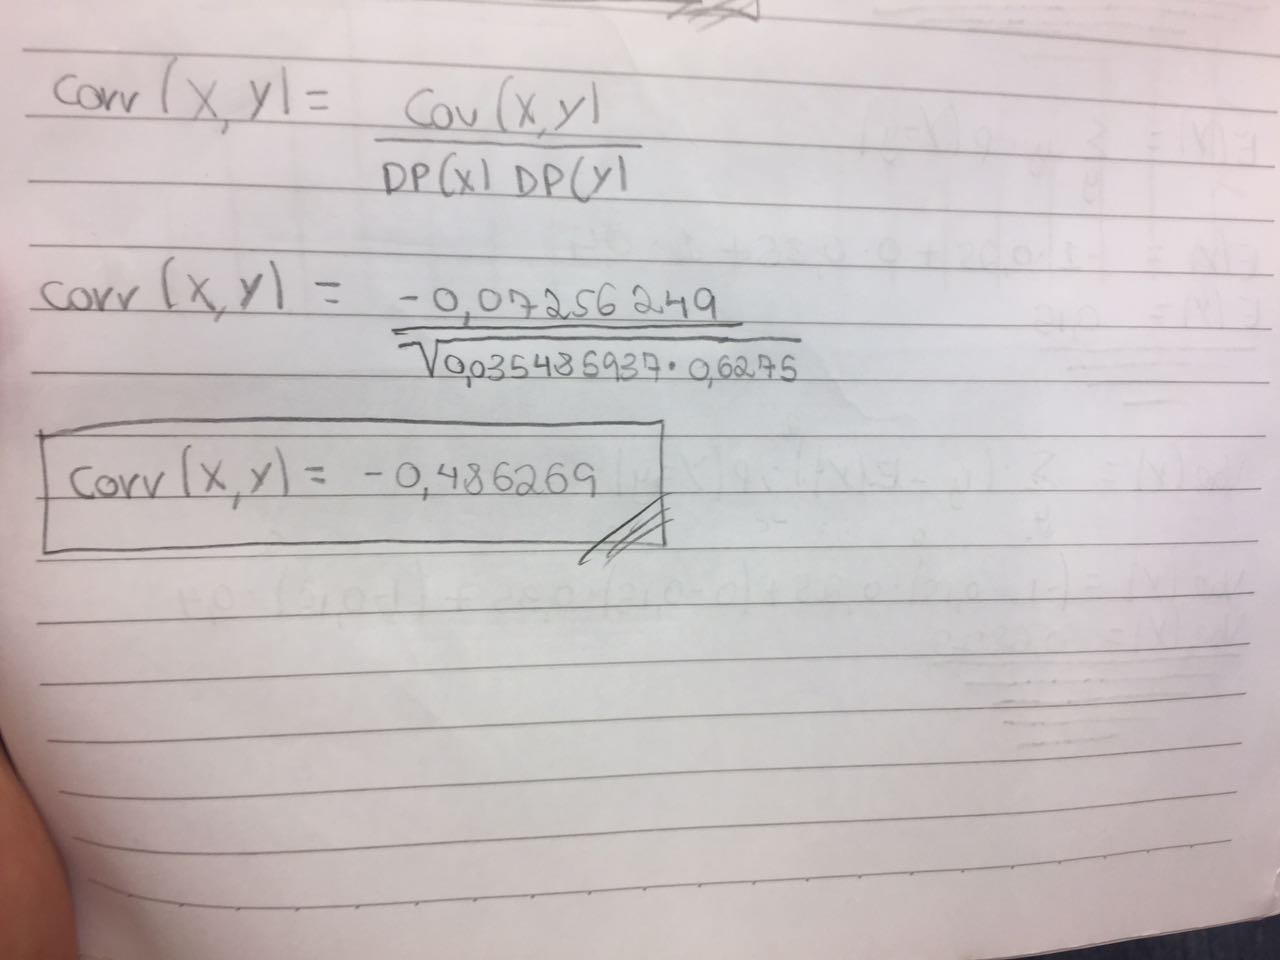 Corr(X,Y) = Cov(X,Y)
DP(X) DP(Y)
Corr(X,Y) = -0,07256249
√0,035485937·0,6275
Corr(X,Y) = -0,486269